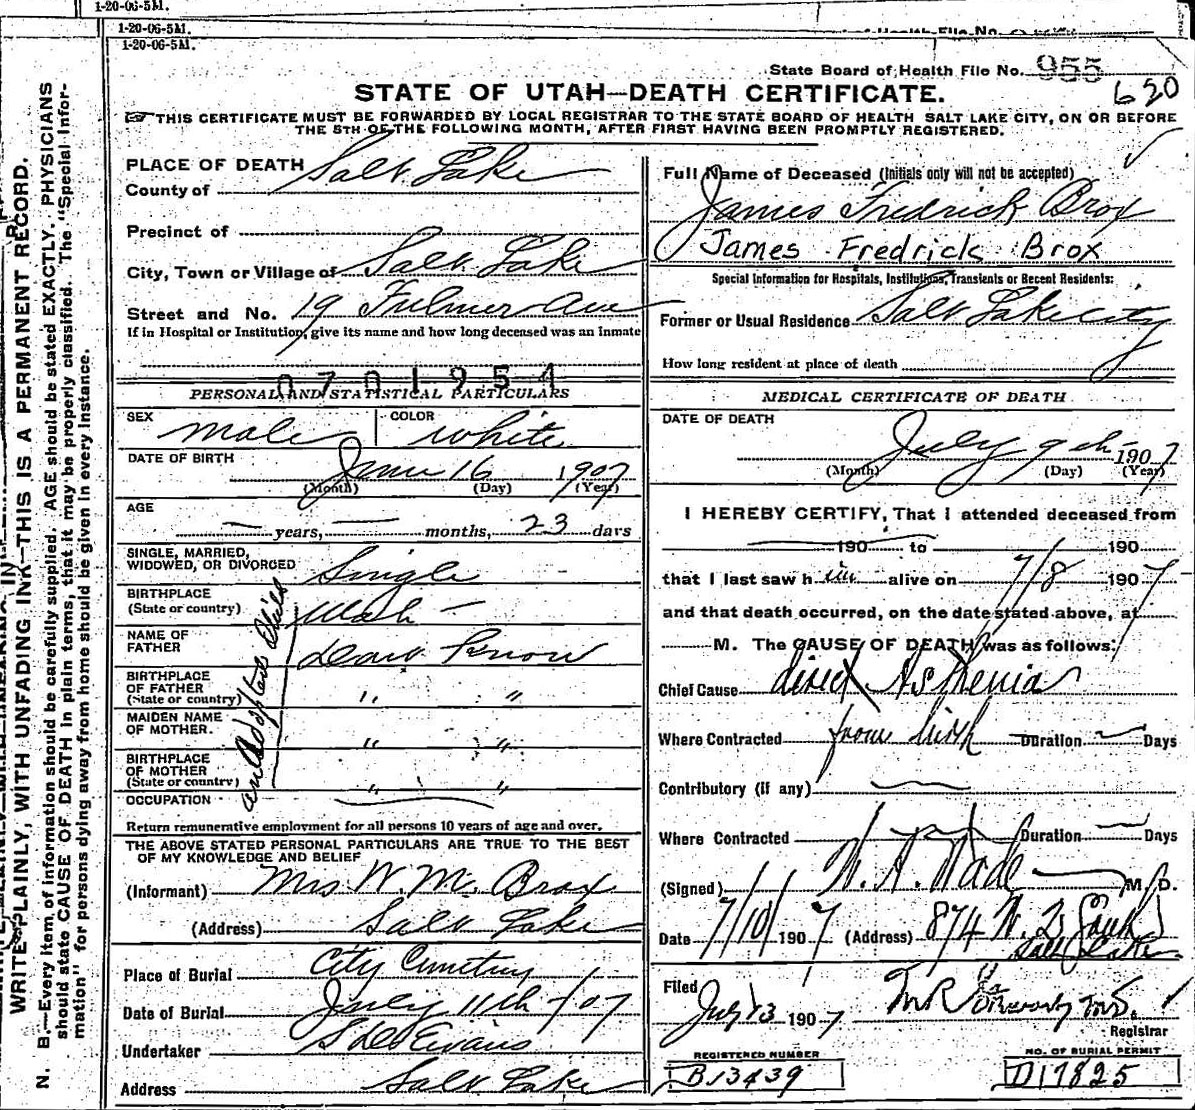 1-20-06-5M.
1-20-06-5M.
1-20-06-5M.
of Health File No.
State Board of Health File No. 955
620
STATE OF UTAH—DEATH CERTIFICATE.
☞ THIS CERTIFICATE MUST BE FORWARDED BY LOCAL REGISTRAR TO THE STATE BOARD OF HEALTH SALT LAKE CITY, ON OR BEFORE
THE 5TH OF THE FOLLOWING MONTH, AFTER FIRST HAVING BEEN PROMPTLY REGISTERED.
WRITE PLAINLY, WITH UNFADING INK—THIS IS A PERMANENT RECORD.
N. B.—Every item of information should be carefully supplied. AGE should be stated EXACTLY. PHYSICIANS
should state CAUSE OF DEATH in plain terms, that it may be properly classified. The "Special Infor-
mation" for persons dying away from home should be given in every instance.
PLACE OF DEATH
County of Salt Lake
Precinct of
City, Town or Village of Salt Lake
Street and No. 19 Fulmer Ave
If in Hospital or Institution, give its name and how long deceased was an Inmate
0701954
PERSONAL AND STATISTICAL PARTICULARS
SEX male COLOR white
DATE OF BIRTH 16 1907
(Month) (Day) (Year)
AGE
— years, — months, 23 days
SINGLE, MARRIED,
WIDOWED, OR DIVORCED Single
BIRTHPLACE
(State or country) Utah —
NAME OF
FATHER dont Know
BIRTHPLACE
OF FATHER " "
(State or country)
MAIDEN NAME
OF MOTHER. " "
BIRTHPLACE
OF MOTHER " "
(State or country)
an adopted child
OCCUPATION
Return remunerative employment for all persons 10 years of age and over.
THE ABOVE STATED PERSONAL PARTICULARS ARE TRUE TO THE BEST
OF MY KNOWLEDGE AND BELIEF
(Informant) Mrs W. Mc Brox
(Address) Salt Lake
Place of Burial City Cemetery
Date of Burial July 11th /07
Undertaker Evans
Address Salt Lake
Full Name of Deceased (Initials only will not be accepted)
James Fredrick Brox
James Fredrick Brox
Special Information for Hospitals, Institutions, Transients or Recent Residents:
Former or Usual Residence Salt Lake City
How long resident at place of death
MEDICAL CERTIFICATE OF DEATH
DATE OF DEATH
July 9th 1907
(Month) (Day) (Year)
I HEREBY CERTIFY, That I attended deceased from
190 to 190
that I last saw h im alive on 7/8 1907
and that death occurred, on the date stated above, at
M. The CAUSE OF DEATH was as follows:
Chief Cause direct Asthenia
Where Contracted from birth Duration — Days
Contributory (if any) —
Where Contracted Duration — Days
(Signed) Wade M. D.
Date 7/10/ 1907 (Address) 874 W. 2 South
Salt Lake
Filed
July 13 1907 M.D.
Registrar
REGISTERED NUMBER NO. OF BURIAL PERMIT
B13439 D17825